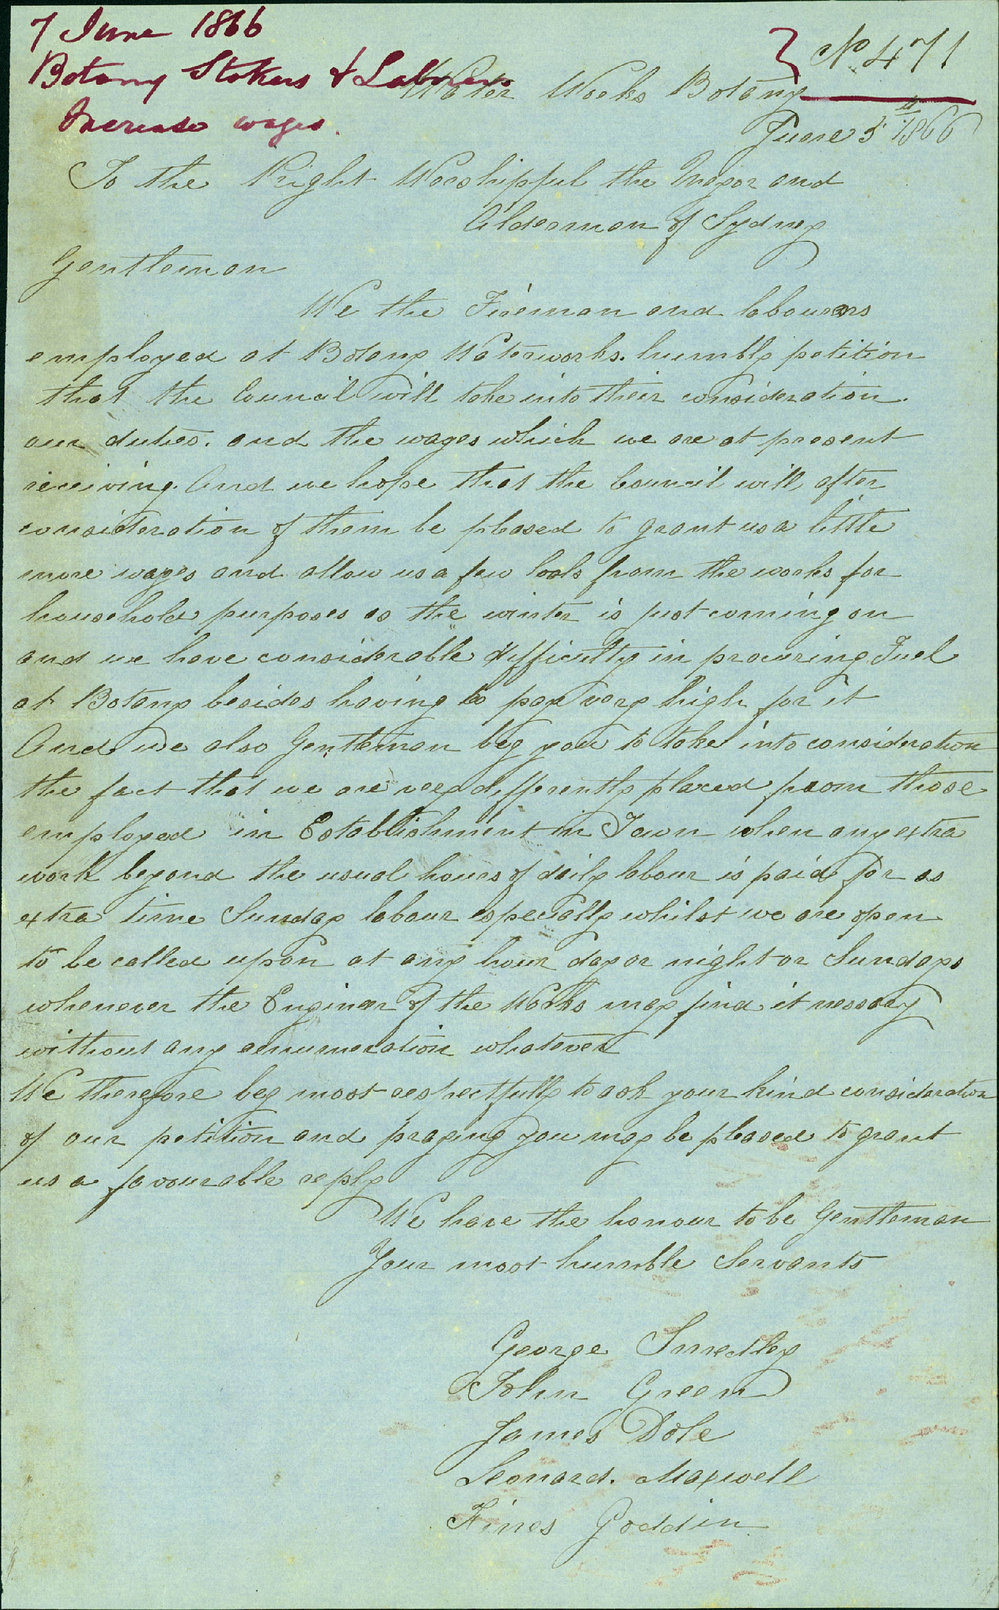 7 June 1866
Botany Stokers & Labrers
Increase wages.
No 471
Water Works Botany
June 5th 1866
To the Right Worshipful the Mayor and
Alderman of Sydney
Gentleman
We the Fireman and labourers
employed at Botany Waterworks. humbly petition
that the Council will take into their consideration.
our duties. and the wages which we are at present
receiving. And we hope that the Council will after
consideration of them be pleased to grant us a little
more wages and allow us a few coals from the works for
household purposes as the winter is just coming on
and we have considerable difficulty in procuring Fuel
at Botany besides having to pay very high for it
And we also Gentleman beg you to take into consideration
the fact that we are very differently placed from those
employed in Establishment in Town when any extra
work beyond the usual hours of daily labour is paid for as
extra time Sunday labour especially whilst we are open
to be called upon at any hour day or night or Sundays
whenever the Enginer of the Works may find it nessary
without any renumeration whatever
We therefore beg most respectfully to ask your kind consideration
of our petition and praying you may be pleased to grant
us a favourable reply
We have the honour to be Gentleman
Your most humble Servants
George Smedley
John Green
James Dole
Leonard. Maxwell
Goddin